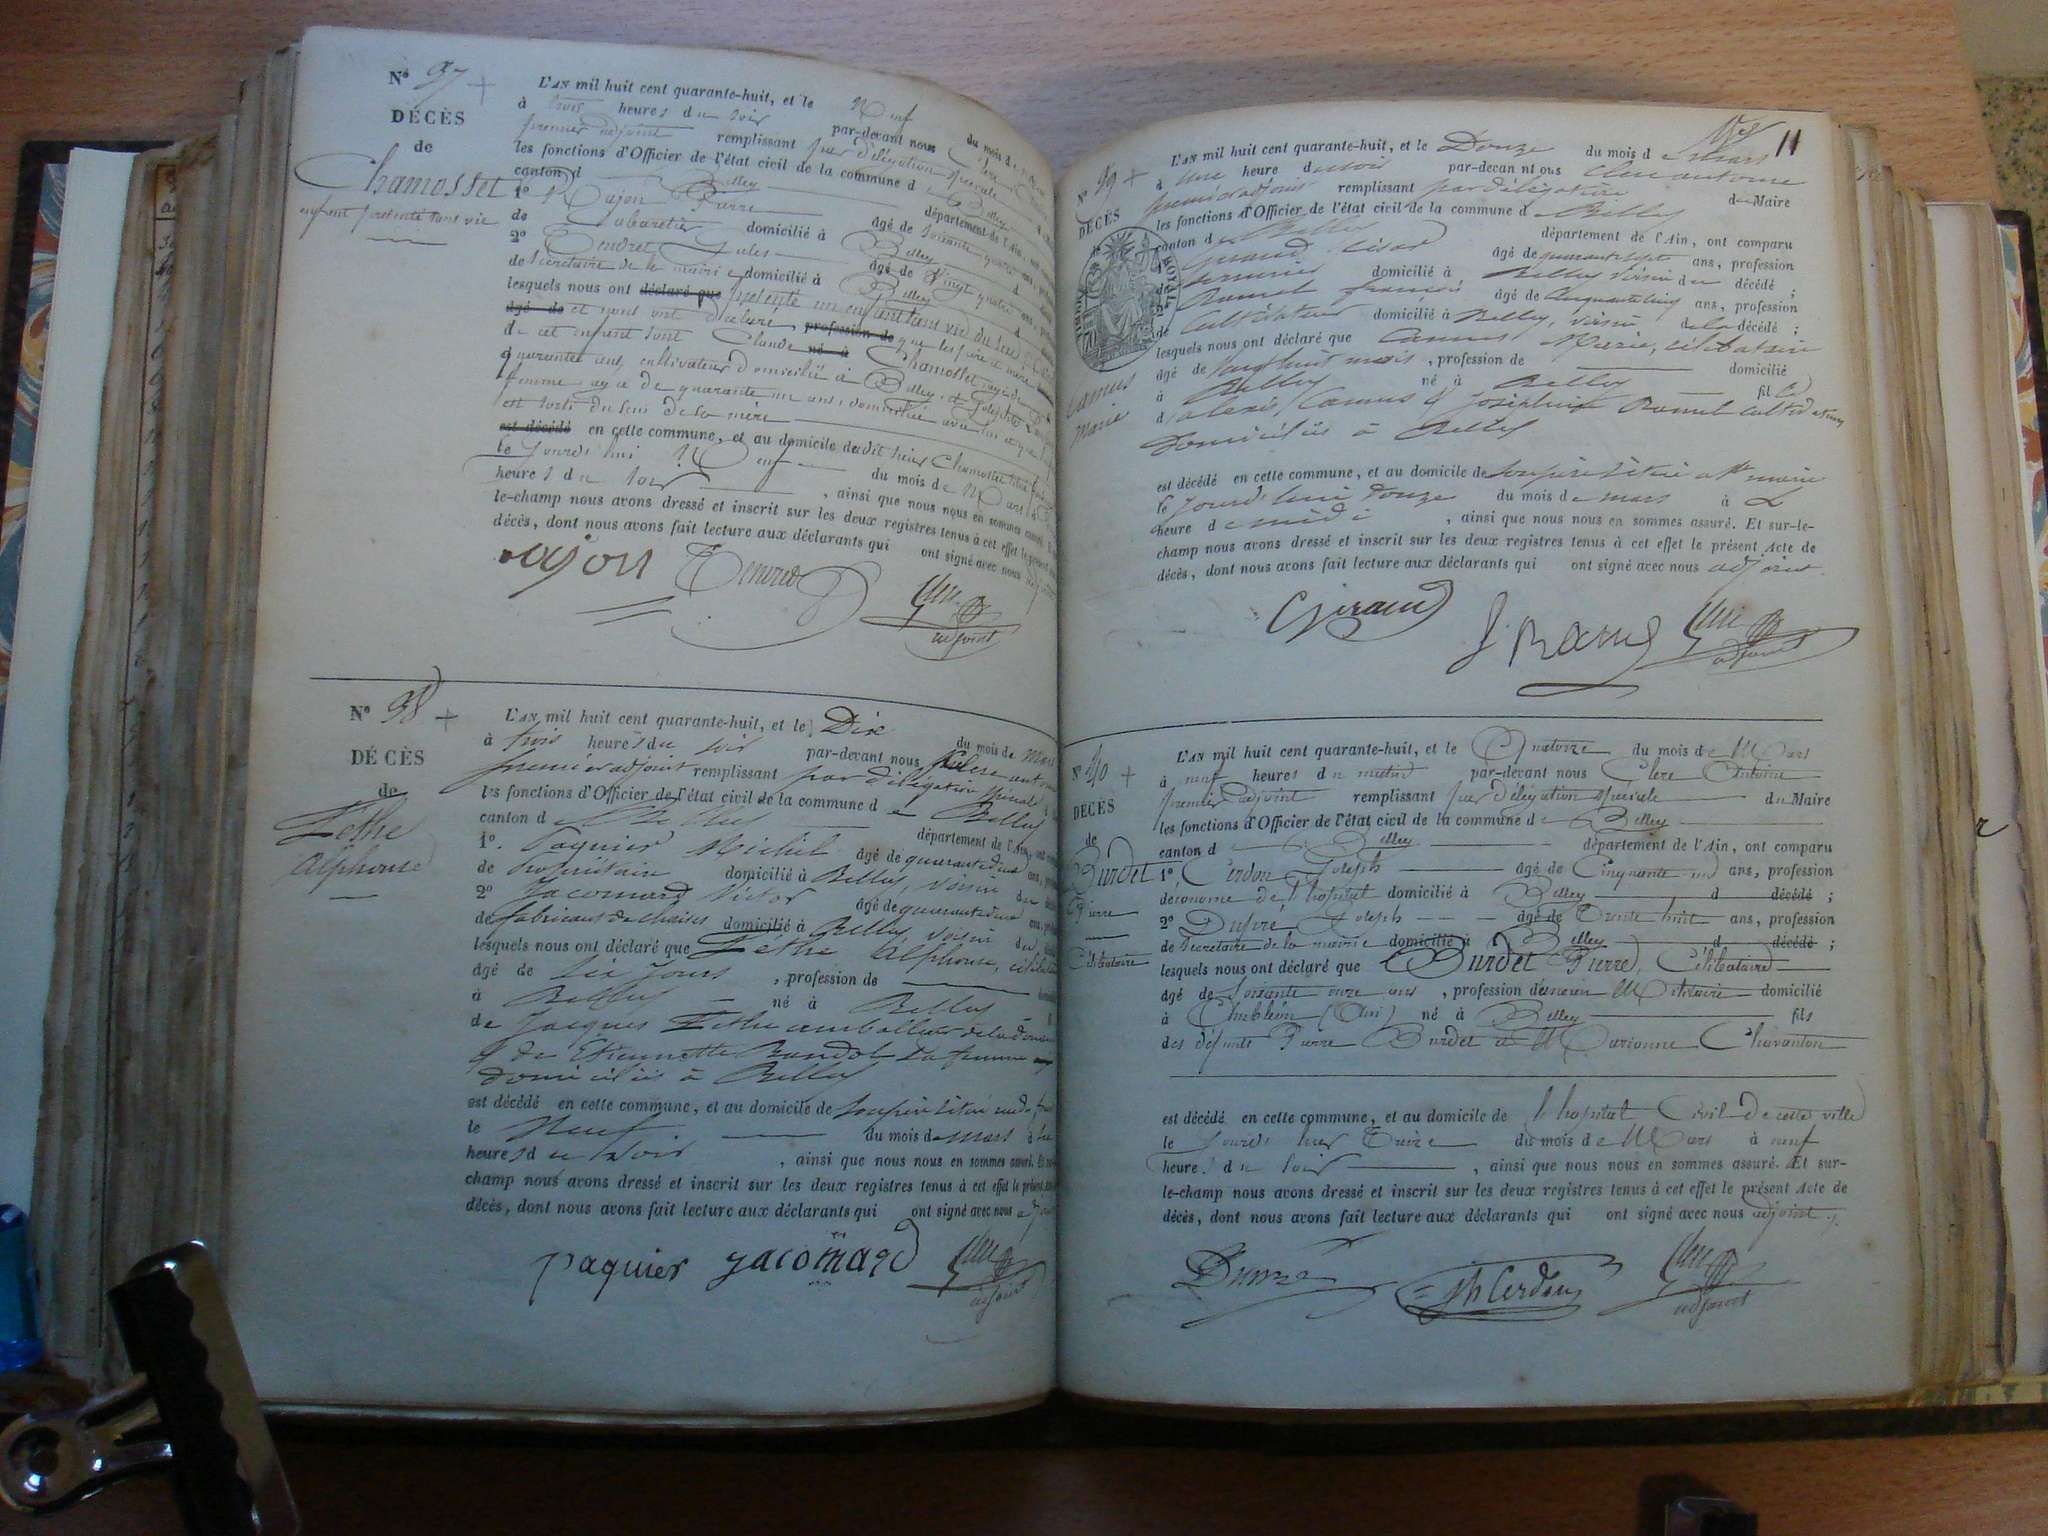 N° 37
DÉCÈS
de
Chamosset
enfant présenté sans vie
L'AN mil huit cent quarante-huit, et le Neuf du mois de
à trois heures du soir par-devant nous Clerc
premier adjoint remplissant par délégation spéciale
les fonctions d'Officier de l'état civil de la commune de Belley
canton d Belley département de l'Ain, ont
1° Rajon Pierre âgé de soixante quatre ans,
de Cabaretier domicilié à Belley
2° Tendret Jules âgé de Vingt quatre ans,
de Secrétaire de la mairie domicilié à Belley
lesquels nous ont déclaré que présenté un enfant sans vie du sexe
âgé de et nous ont déclaré profession de que les père et mère
de cet enfant sont Claude né à Chamosset âgé de
quarante ans, cultivateur domicilié à Belley, et Josephte
femme agée de quarante un ans, domiciliée avec lui et que
est sorti du sein de sa mère
est décédé en cette commune, et au domicile dudit sieur Chamosset
le jourd'hui Neuf du mois de Mars à
heures du soir , ainsi que nous nous en sommes assuré.
le-champ nous avons dressé et inscrit sur les deux registres tenus à cet effet le présent
décès, dont nous avons fait lecture aux déclarants qui ont signé avec nous
Rajon Tendret Clerc
adjoint
N° 38
DÉCÈS
de
Léthe
Alphonse
L'AN mil huit cent quarante-huit, et le Dix du mois de Mars
à trois heures du soir par-devant nous Clerc antoine
premier adjoint remplissant par délégation spéciale
les fonctions d'Officier de l'état civil de la commune de Belley
canton de Belley département de l'Ain, ont
1°. Paquier Michel âgé de quarante deux ans,
de propriétaire domicilié à Belley, voisin du
2° Jacomard Victor âgé de quarante deux ans,
de fabricant de chaises domicilié à Belley voisin du
lesquels nous ont déclaré que Léthe Alphonse, célibataire
âgé de six jours , profession de
à Belley né à Belley
de Jacques Léthe emballeur de la douane
& de Etiennette Bandol sa femme
domiciliés à Belley
est décédé en cette commune, et au domicile de
le Neuf du mois de mars à
heures du soir , ainsi que nous nous en sommes assuré. Et
champ nous avons dressé et inscrit sur les deux registres tenus à cet effet le présent
décès, dont nous avons fait lecture aux déclarants qui ont signé avec nous
paquier jacomard Clerc
adjoint
11
N° 39
DÉCÈS
de
Camus
Marie
L'AN mil huit cent quarante-huit, et le Douze du mois de Mars
à une heure du soir par-devant nous Clerc antoine
premier adjoint remplissant par délégation du Maire
les fonctions d'Officier de l'état civil de la commune d Belley
canton d Belley département de l'Ain, ont comparu
Giraud César âgé de quarante sept ans, profession
serrurier domicilié à Belley voisin du décédé ;
Ramel françois âgé de cinquante cinq ans, profession
de Cultivateur domicilié à Belley, voisin de la décédé ;
lesquels nous ont déclaré que Camus Marie, célibataire
âgé de vingt huit mois , profession de domicilié
à Belley né à Belley fille
d alexis Camus & Joséphine Ramel cultivateurs
domiciliés à Belley
est décédé en cette commune, et au domicile de son père situé
le jourd'hui douze du mois de mars à
heure de midi , ainsi que nous nous en sommes assuré. Et sur-le-
champ nous avons dressé et inscrit sur les deux registres tenus à cet effet le présent Acte de
décès, dont nous avons fait lecture aux déclarants qui ont signé avec nous adjoint.
C Giraud
f. Ramel Clerc
adjoint
N° 40
DÉCÈS
de
Burdet
Pierre
Célibataire
L'AN mil huit cent quarante-huit, et le Quatorze du mois de Mars
à neuf heures du matin par-devant nous Clerc Antoine
premier adjoint remplissant par délégation spéciale du Maire
les fonctions d'Officier de l'état civil de la commune de Belley
canton d Belley département de l'Ain, ont comparu
1° Cerdon Joseph âgé de Cinquante un ans, profession
d'économe de l'hôpital domicilié à Belley d décédé ;
2° Dupré Joseph âgé de Trente huit ans, profession
de Secrétaire de la mairie domicilié à Belley d décédé ;
lesquels nous ont déclaré que Burdet Pierre, Célibataire
âgé de soixante onze ans , profession d'ancien Militaire domicilié
à (Ain) né à Belley fils
des défunts Pierre Burdet et Marianne Chavanton
est décédé en cette commune, et au domicile de l'hôpital Civil de cette ville
le jourd'hier Treize du mois de Mars à neuf
heures du soir , ainsi que nous nous en sommes assuré. Et sur-
le-champ nous avons dressé et inscrit sur les deux registres tenus à cet effet le présent Acte de
décès, dont nous avons fait lecture aux déclarants qui ont signé avec nous adjoint
Dupré Jph Cerdon Clerc
adjoint